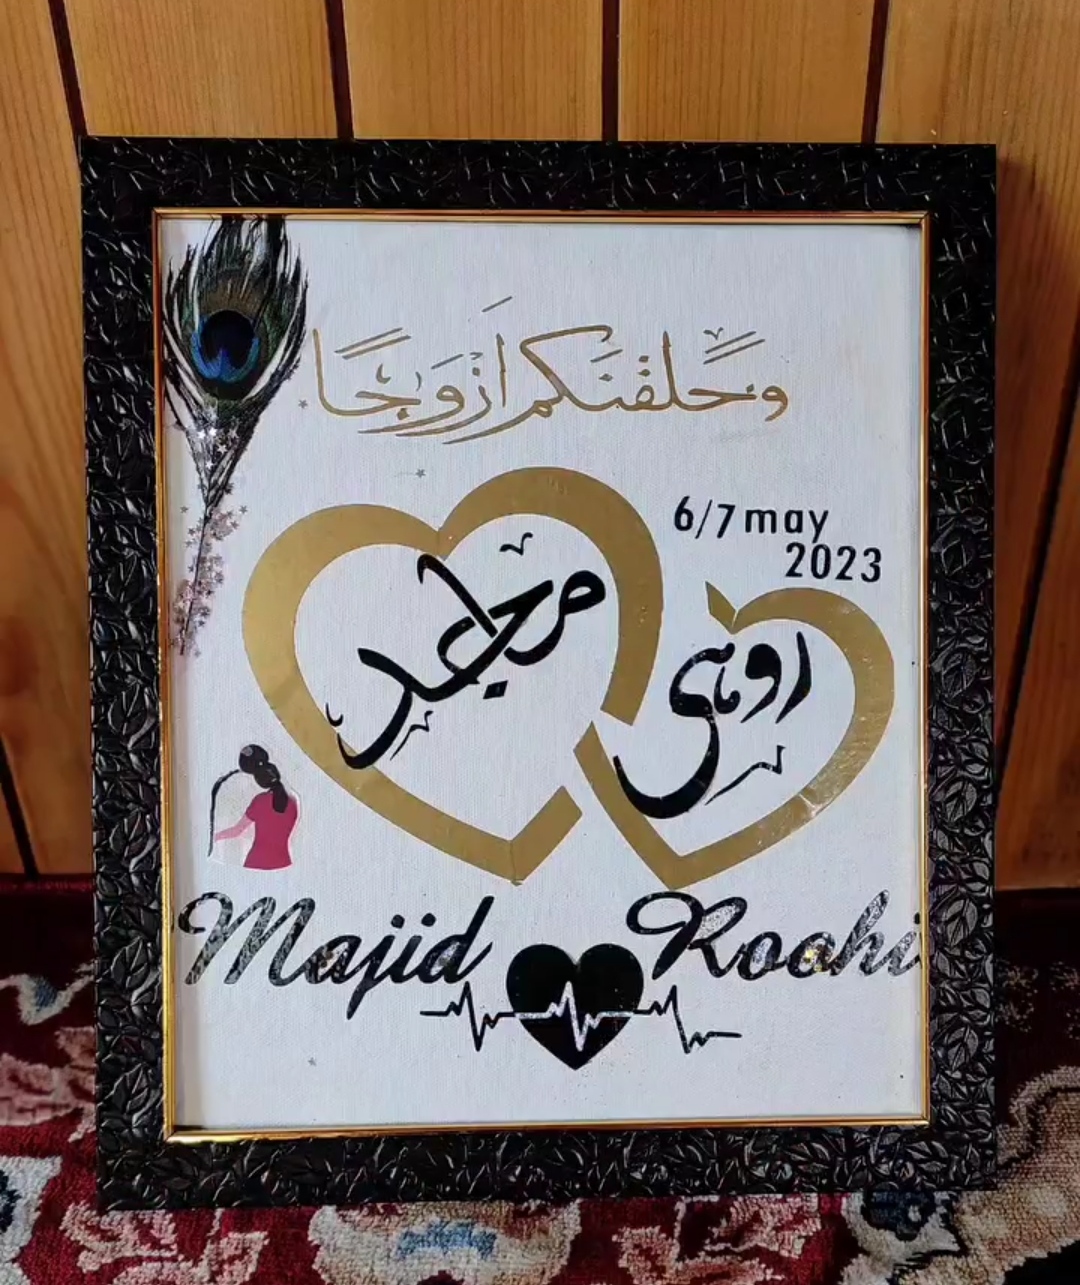 وخلقنكم ازوجا
6/7 may
2023
ماجد
روہی
Majid Roohi